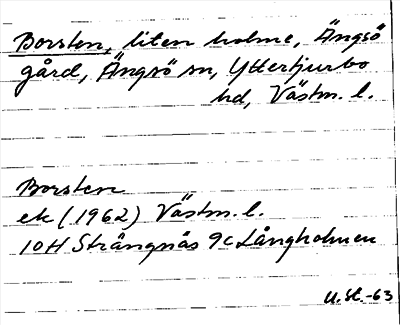 Borsten, liten holme, Ängsö
gård, Ängsö sn, Yttertjurbo
hd, Västm. l.
Borsten
ek (1962) Västm. l.
10H Strängnäs 9c Långholmen
U. St. -63